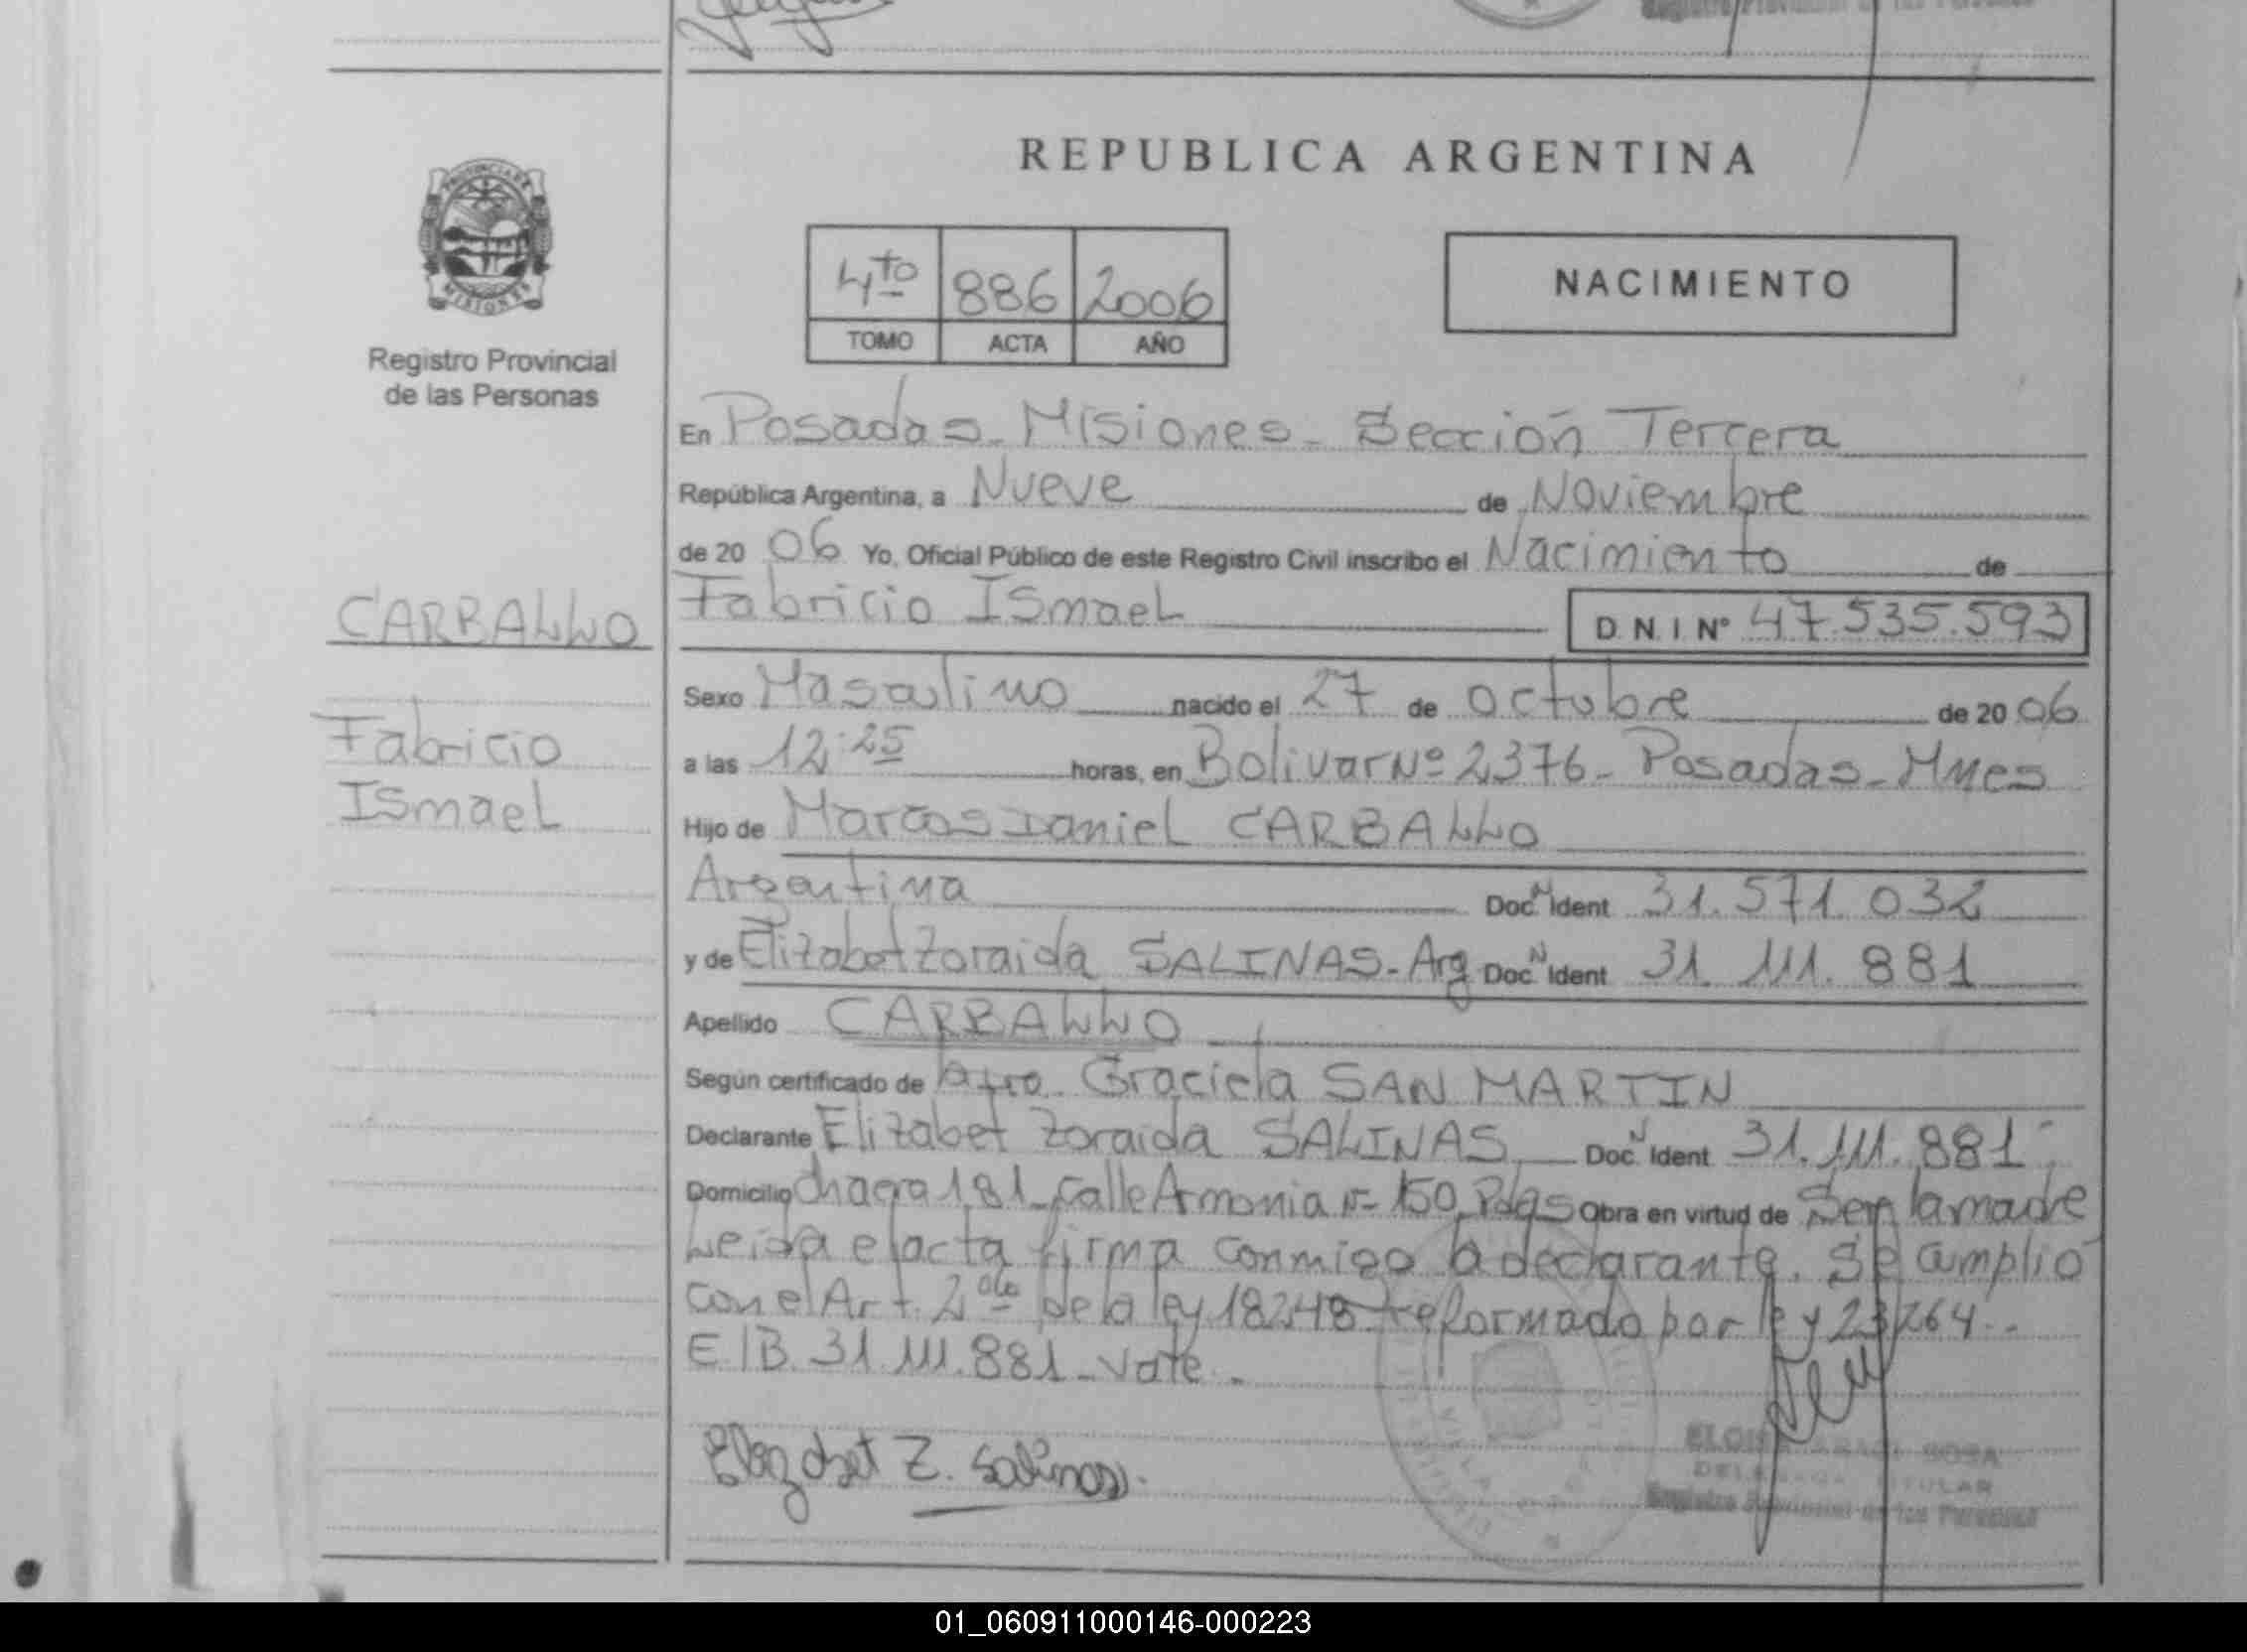 REPUBLICA ARGENTINA
PROVINCIA DE
MISIONES
Registro Provincial
de las Personas
4to 886 2006
TOMO ACTA AÑO
NACIMIENTO
CARBALLO
Fabricio
Ismael
En Posadas - Misiones - Sección Tercera
República Argentina, a Nueve de Noviembre
de 20 06 Yo, Oficial Público de este Registro Civil inscribo el Nacimiento de
Fabricio Ismael D.N.I. Nº 47.535.593
Sexo Masculino nacido el 27 de octubre de 20 06
a las 12:25 horas, en Bolivar Nº 2376 - Posadas - Mnes
Hijo de Marcos Daniel CARBALLO
Argentina Doc. N Ident 31.571.032
y de Elizabet Zoraida SALINAS - Arg Doc. N Ident 31.111.881
Apellido CARBALLO
Según certificado de Graciela SAN MARTIN
Declarante Elizabet Zoraida SALINAS Doc. N Ident 31.111.881
Domicilio Chacra 181 - Calle Armonia Nº 150 Pdas Obra en virtud de Ser la madre
Leida el acta firma conmigo la declarante. Se cumplio
con el Art. 2do de la ley 18248 reformado por ley 23264.-
E/B. 31.111.881 - Vale.-
Elizabet Z. Salinas.
SOSA
TITULAR
Registro Provincial de las Personas
01_060911000146-000223